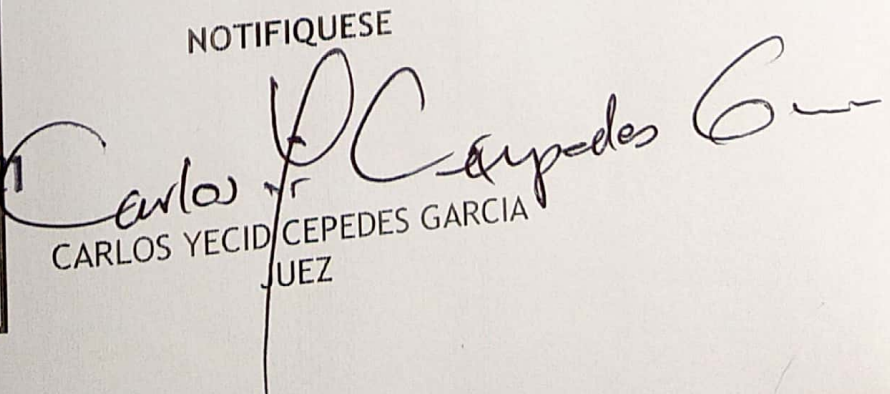 NOTIFIQUESE
Carlos Y Cespedes G
CARLOS YECID CEPEDES GARCIA
JUEZ